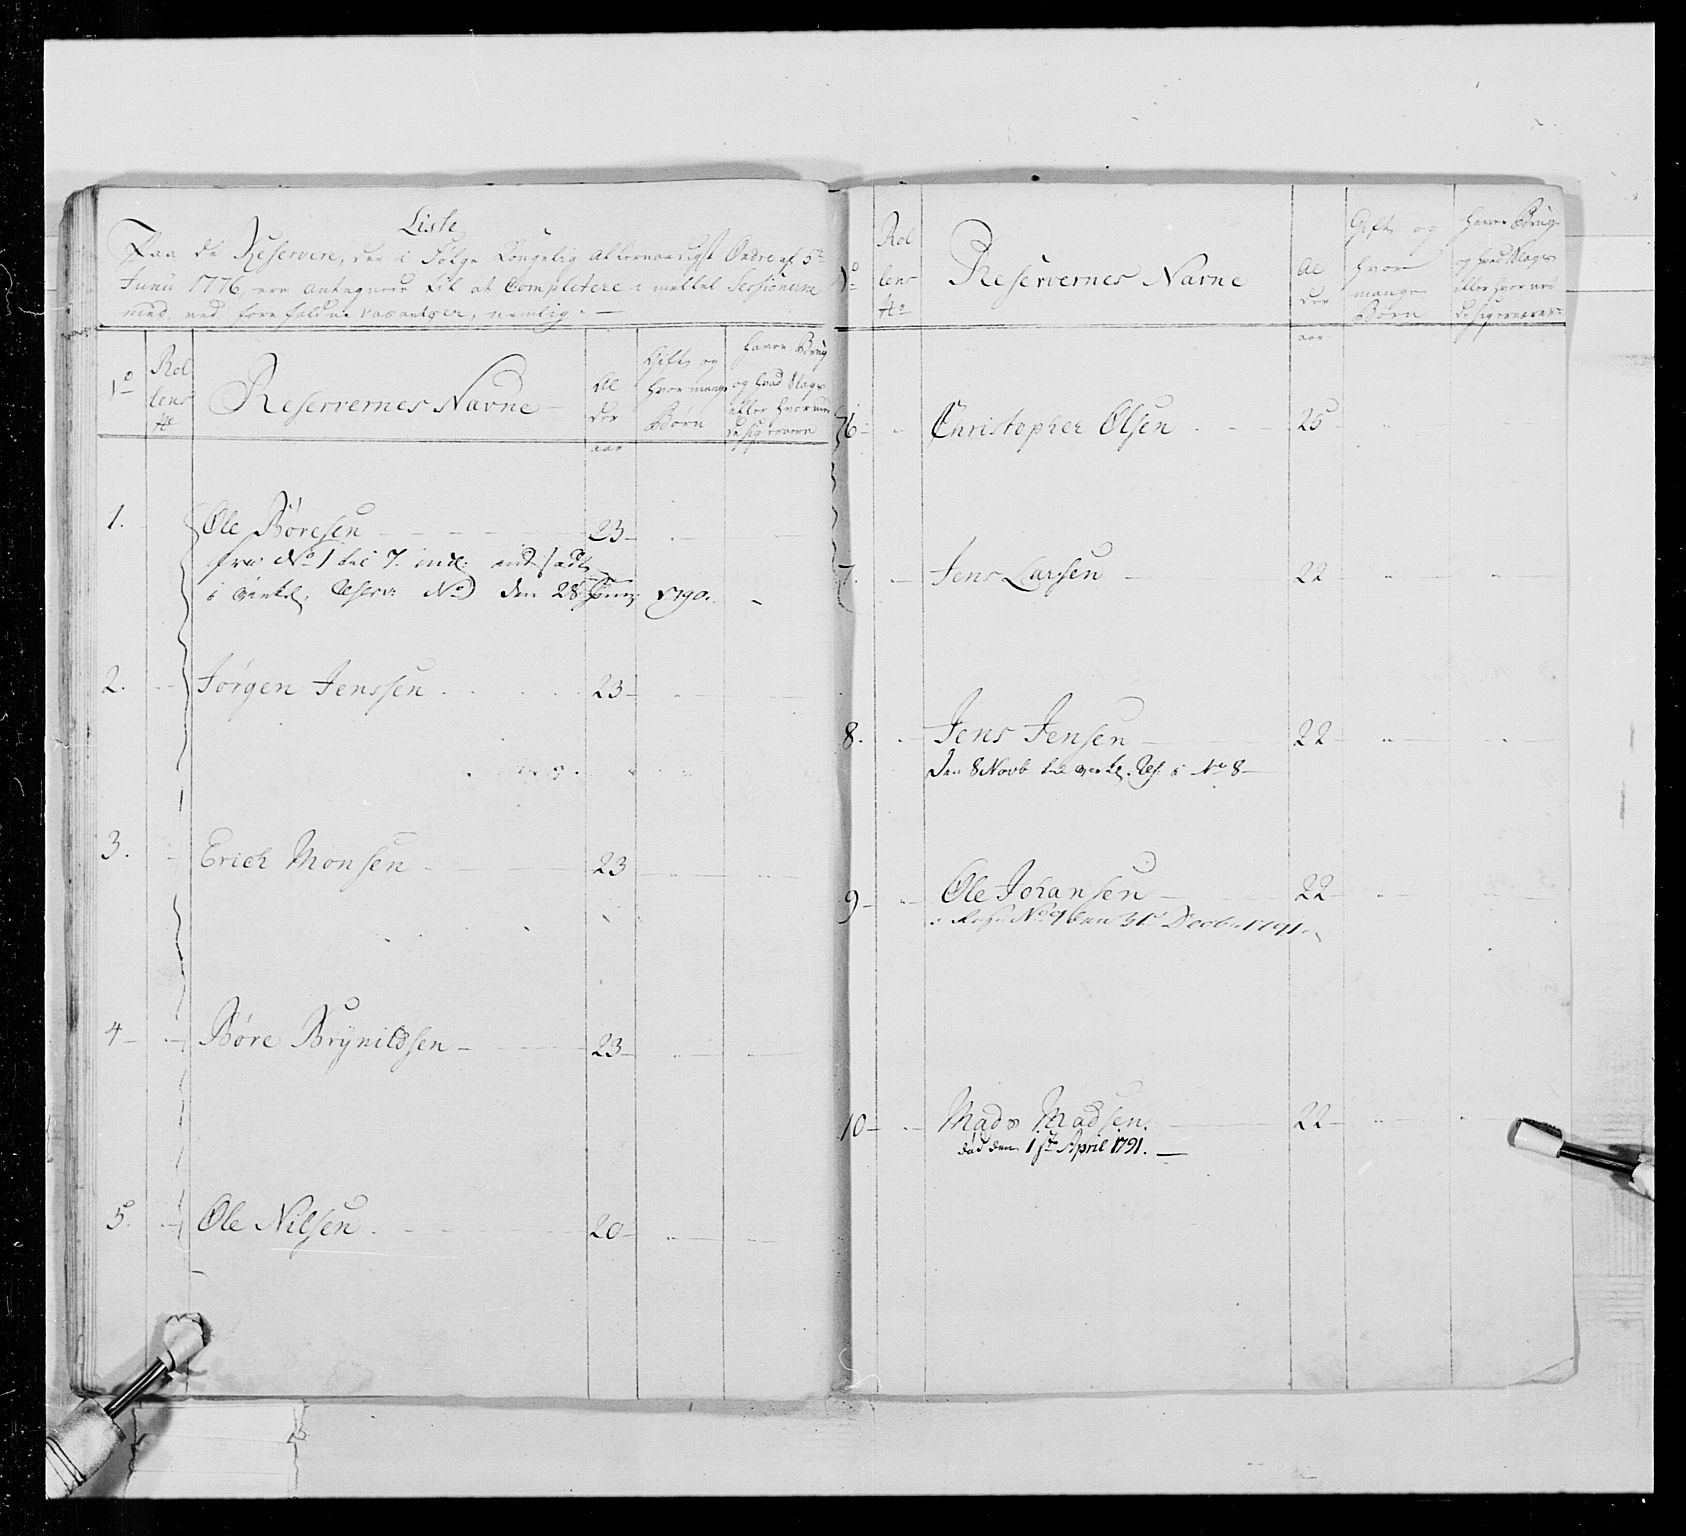 Liste
Paa de Reservere, der i Følge Kongelig allernaadigst Ordre af 5te
Junii 1776, ere antegnede til at Completere i mellem Sessionerne
med, ved fore faldne vacantser, nemlig. —
No
Rol
lens
No
Reservernes Navne
Al
der
aar
Gift og
hvor mange
Børn
Haver Brug
og hvad Slags
eller hvor med
de sig ernærer
1. Ole Børesen 23
fra No 1 til 7. incl. indsadt
i Virkel. Reserve No den 28 1790.
2. Jørgen Jenssen 23
3. Erich Monsen 23
4 Børe Brÿnildsen 23
5. Ole Nilsen 20
No
Rol
lens
No
Reservernes Navne
Al
der
aar
Gift og
hvor
mange
Børn
Haver Brug
og hvad Slags
eller hvor med
de sig ernærer
6 Christopher Olsen 25
7. Jens Larsen 22
8. Jens Jensen 22
Den 8 Novb til Virkel. Res. i No 8
9 Ole Johansen 22
i Res. No 9 den 31 Decbr 1791.
10 Mads Madsen. 22
død den 1ste April 1791. —